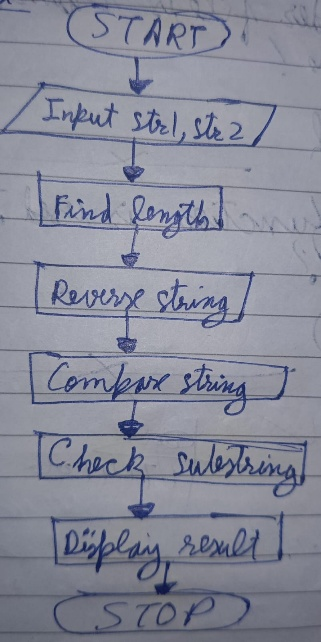 START
Input str1, str2
Find length
Reverse string
Compare string
Check substring
Display result
STOP